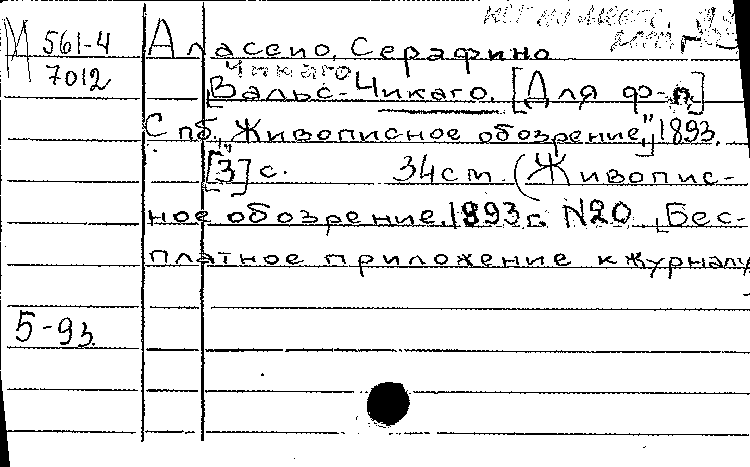 нет на месте
М 561-4
7012
Аласеио, Серафино
Чикаго
Вальс-Чикаго. [Для ф-п.]
Спб., "Живописное обозрение", 1893.
[3] с. 34 cm. (Живопис-
ное обозрение. 1893 г. N20. Бес-
платное приложение к журналу
5-93